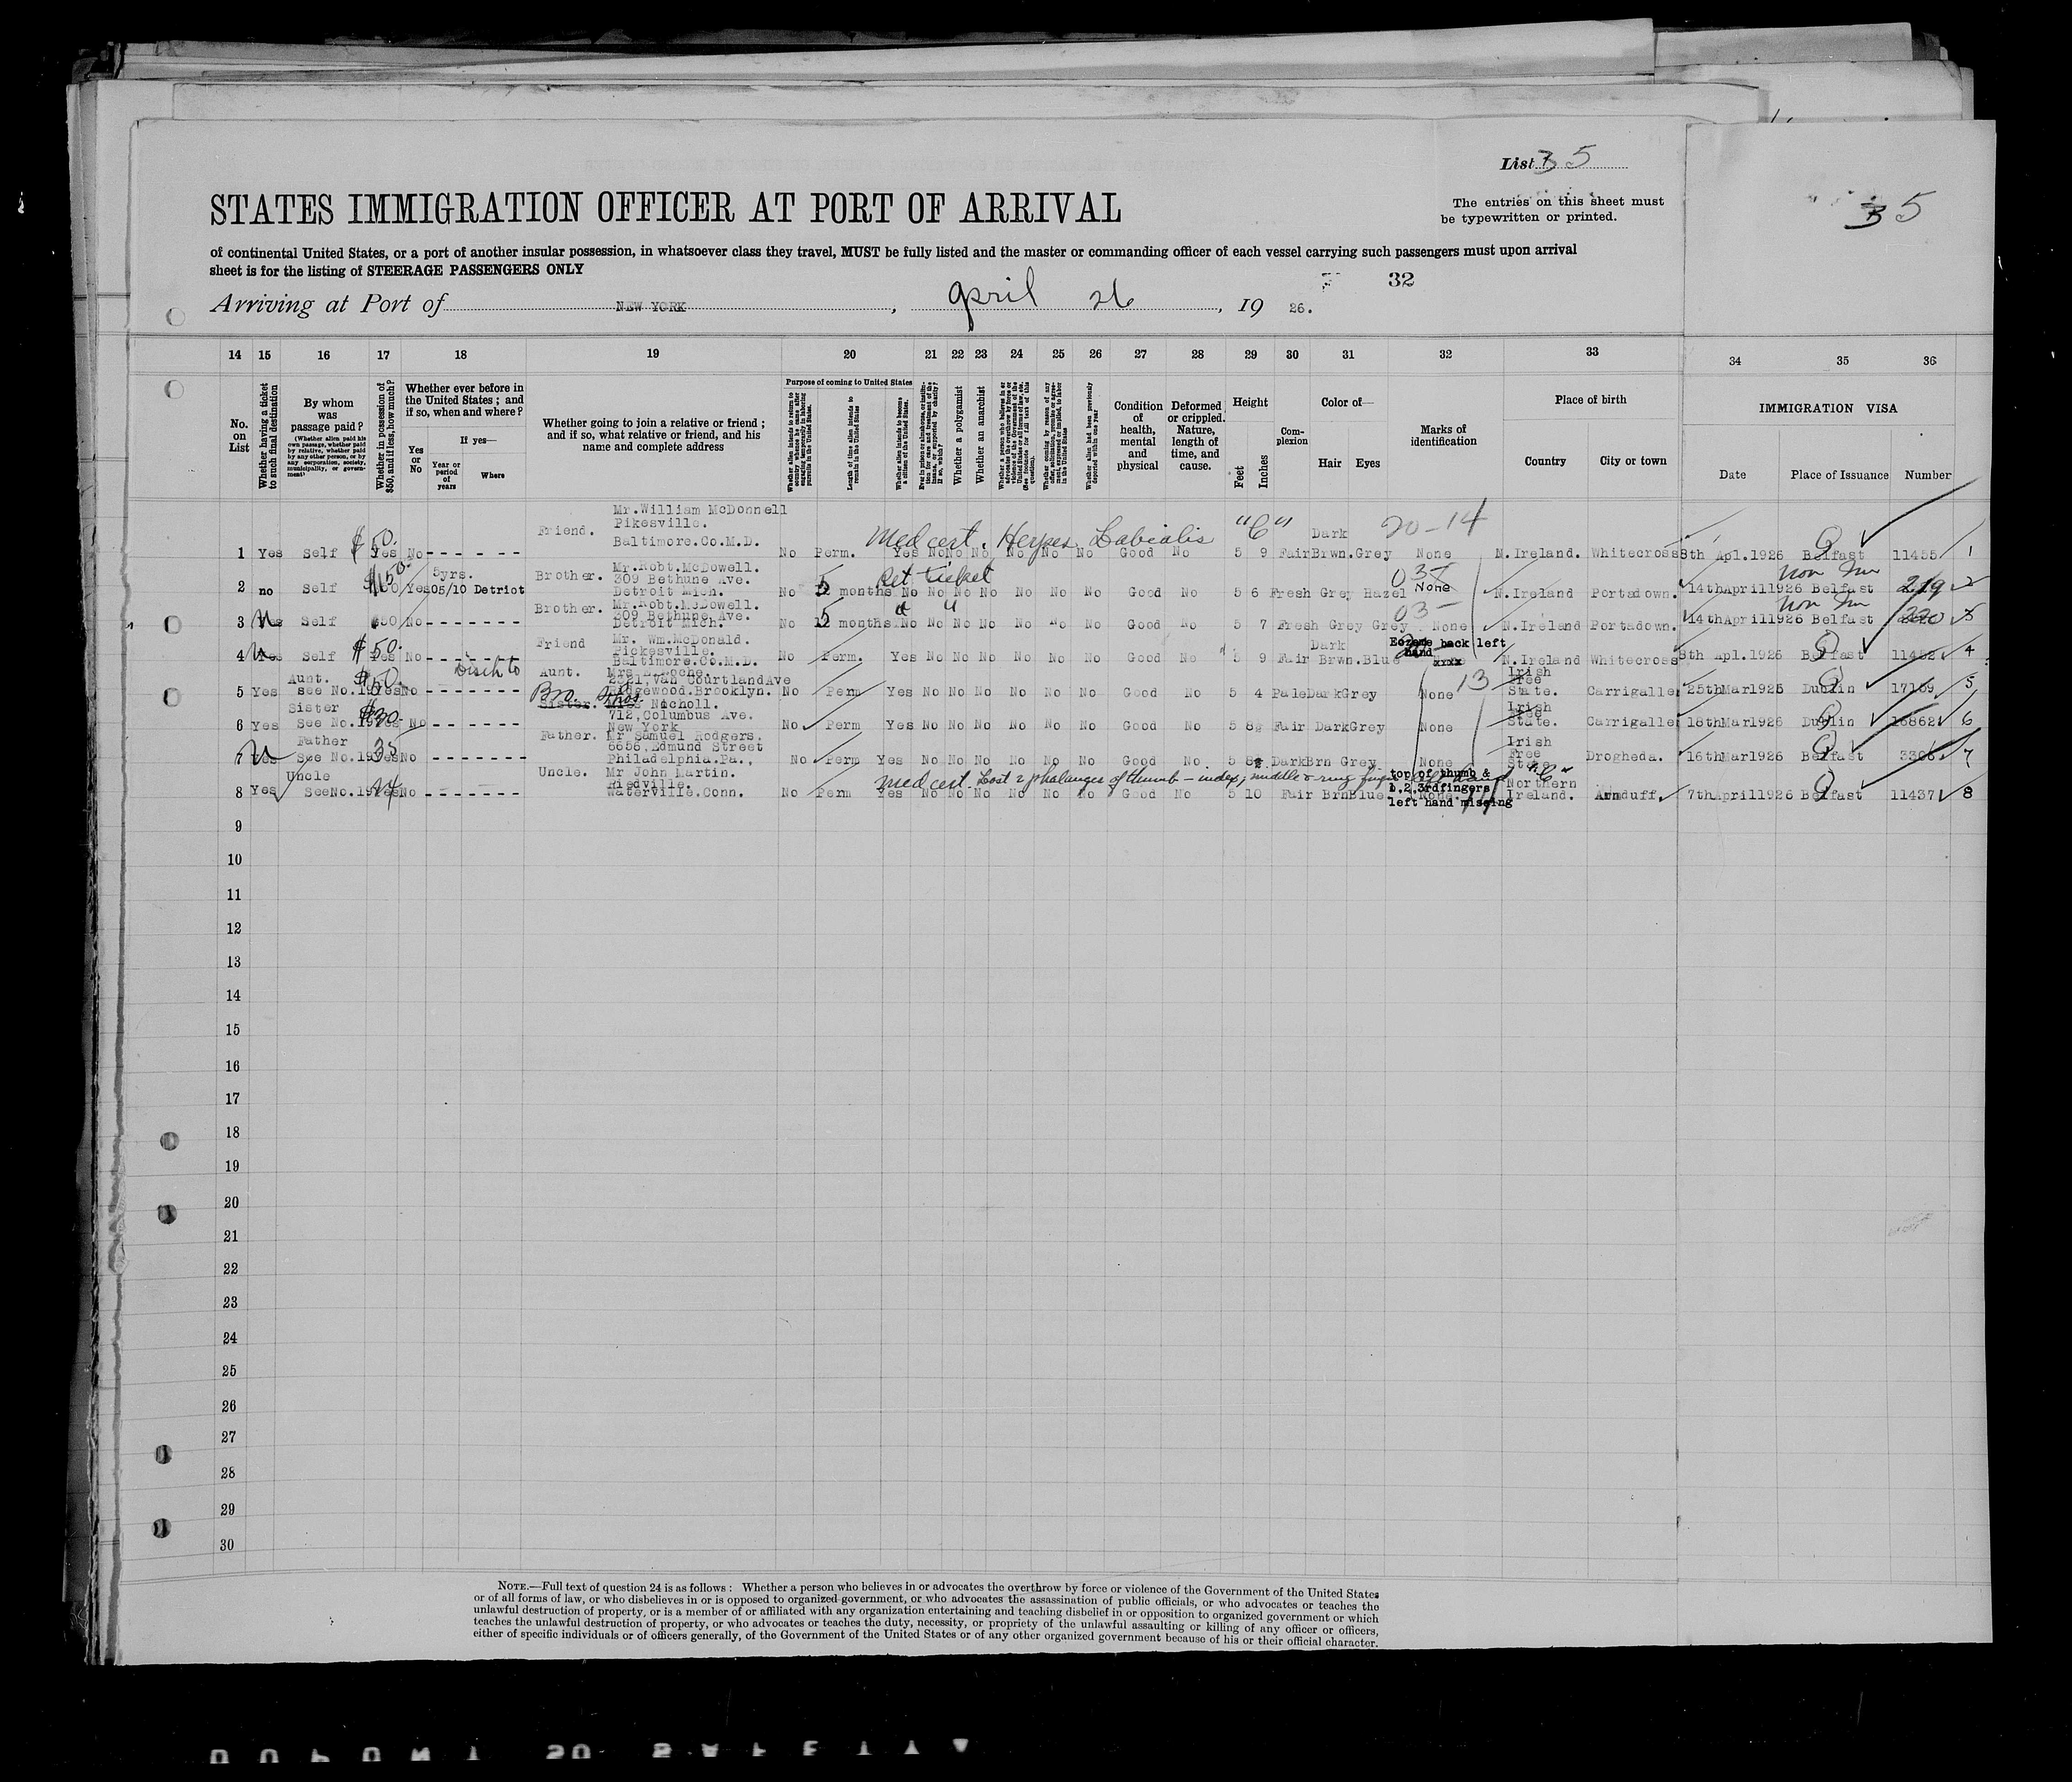 List 35
STATES IMMIGRATION OFFICER AT PORT OF ARRIVAL
The entries on this sheet must
be typewritten or printed.
35
of continental United States, or a port of another insular possession, in whatsoever class they travel, MUST be fully listed and the master or commanding officer of each vessel carrying such passengers must upon arrival
sheet is for the listing of STEERAGE PASSENGERS ONLY
32
Arriving at Port of NEW YORK, April 26, 19 26.
14 15 16 17 18 19 20 21 22 23 24 25 26 27 28 29 30 31 32 33 34 35 36
No. on List
Whether having a ticket to such final destination
By whom was passage paid?
(Whether alien paid his own passage, whether paid by relative, whether paid by any other person, or by any corporation, society, municipality, or government)
Whether in possession of $50, and if less, how much?
Whether ever before in the United States; and if so, when and where?
Yes or No
If yes—
Year or period of years
Where
Whether going to join a relative or friend; and if so, what relative or friend, and his name and complete address
Purpose of coming to United States
Length of time alien intends to remain in the United States
Whether alien intends to become a citizen of the United States.
Whether a polygamist
Whether an anarchist
Whether alien had been previously deported within one year
Condition of health, mental and physical
Deformed or crippled. Nature, length of time, and cause.
Height
Feet
Inches
Complexion
Color of—
Hair
Eyes
Marks of identification
Place of birth
Country
City or town
IMMIGRATION VISA
Date
Place of Issuance
Number
Mr.William McDonnell
Friend. Pikesville.
Baltimore.Co.M.D.
Med cert. Herpes Labialis "C" Dark 20-14
1 Yes Self $50. Yes No - - - - - - No Perm. Yes No No No No No No Good No 5 9 Fair Brwn.Grey None N.Ireland. Whitecross 8th Apl.1926 Belfast 11455 1
5yrs. Brother. Mr.Robt.McDowell.
309 Bethune Ave. Ret ticket 03- Non Im
2 no Self $150 Yes 05/10 Detriot Detroit Mich. No 5 months No No No No No No No Good No 5 6 Fresh Grey Hazel None N.Ireland Portadown. 14thApril1926 Belfast 219 2
Brother. Mr.Robt.McDowell.
309 Bethune Ave. " " 03- Non Im
3 Self No - - - - - - Detroit Mich. No 5 months No No No No No No No Good No 5 7 Fresh Grey Grey None N.Ireland Portadown. 14thApril1926 Belfast 220 3
Friend Mr. Wm.McDonald.
Pickesville. Dark Eczema back left
hand
4 Self $50. Yes No - - - - - - Baltimore.Co.M.D. No Perm. Yes No No No No No No Good No 5 9 Fair Brwn.Blue xxxx N.Ireland Whitecross 8th Apl.1926 Belfast 11452 4
Aunt. Disch to Aunt. Mrs. Roche.
2321,Van CourtlandAve
5 Yes See No.19 $50. Yes No - - - - - - Ridgewood.Brooklyn. No Perm Yes No No No No No No Good No 5 4 Pale Dark Grey None 13 Irish Free State. Carrigallen 25thMar1926 Dublin 17169 5
Sister Bro. Thos. Sister. Nicholl.
712,Columbus Ave.
6 Yes See No.19 $30. No - - - - - - New York No Perm Yes No No No No No No Good No 5 8½ Fair Dark Grey None Irish Free State. Carrigallen 18thMar1926 Dublin 16862 6
Father Father. Mr Samuel Rodgers.
6656,Edmund Street
7 See No.19 35 Yes No - - - - - - Philadelphia.Pa., No Perm Yes No No No No No No Good No 5 Dark Brn Grey None Irish Free State Drogheda. 16thMar1926 Belfast 3306 7
Uncle Uncle. Mr John Martin.
Riedville.
Med cert. Lost 2 phalanges of thumb - index, middle & ring fingers left hand "C"
top of thumb &
1,2,3rdfingers
left hand missing
8 Yes SeeNo.19 24 No - - - - - - Waterville.Conn. No Perm Yes No No No No No No Good No 5 10 Fair Brn Blue None. Northern Ireland. Armduff. 7thApril1926 Belfast 11437 8
9
10
11
12
13
14
15
16
17
18
19
20
21
22
23
24
25
26
27
28
29
30
NOTE.—Full text of question 24 is as follows: Whether a person who believes in or advocates the overthrow by force or violence of the Government of the United States
or of all forms of law, or who disbelieves in or is opposed to organized government, or who advocates the assassination of public officials, or who advocates or teaches the
unlawful destruction of property, or is a member of or affiliated with any organization entertaining and teaching disbelief in or opposition to organized government or which
teaches the unlawful destruction of property, or who advocates or teaches the duty, necessity, or propriety of the unlawful assaulting or killing of any officer or officers,
either of specific individuals or of officers generally, of the Government of the United States or of any other organized government because of his or their official character.